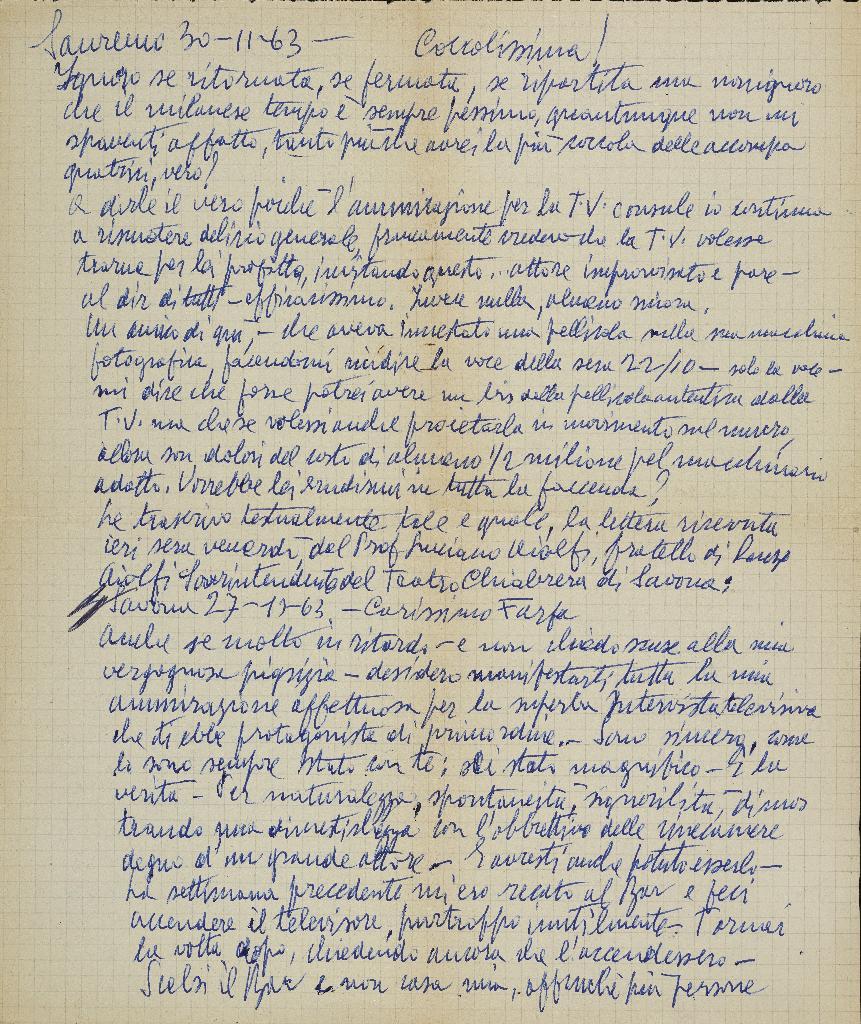 Sanremo 30-11-63 — Coccolissima!
Ignoro se ritornata, se fermata, se ripartita ma non ignoro
che il milanese tempo è sempre pessimo, quantunque non mi
spaventi affatto, tanto più che avrei la più coccola delle accompa
gnatrici, vero?
A dirle il vero poiché l'ammirazione per la T.V. consule io continua
a riscuotere delirio generale, francamente credevo che la T.V. volesse
trarne per lei profitto, invitando questo.. attore improvvisato e pare —
al dir di tutti — efficacissimo. Invece nulla, almeno sinora.
Un amico di qui, — che aveva innestato una pellicola nella sua macchina
fotografica, facendomi riudire la voce della sera 22/10 — solo la voce —
mi dice che forse potrei avere un bis della pellicola autentica dalla
T.V. ma che se volessi anche proiettarla in movimento sul muro,
allora son dolori del costo di almeno 1/2 milione pel macchinario
adatto. Vorrebbe lei erudirmi in tutta la faccenda?
Le trascrivo testualmente tale e quale, la lettera ricevuta
ieri sera venerdì dal Prof Luciano Aiolfi, fratello di
Aiolfi Sovrintendente del Teatro Chiabrera di Savona:
Savona 27-11-63 — Carissimo Farfa
Anche se molto in ritardo — e non chiedo scuse alla mia
vergognosa pigrizia — desidero manifestarti tutta la mia
ammirazione affettuosa per la superba Intervista televisiva
che ti ebbe protagonista di primordine. — Sono sincero, come
lo sono sempre stato con te: sei stato magnifico — È la
verità — Per naturalezza, spontaneità, signorilità, dimos
trando una dimestichezza con l'obbiettivo delle
degna d'un grande attore — E avresti anche potuto esserlo —
La settimana precedente mi ero recato al Bar e feci
accendere il televisore, purtroppo inutilmente. Tornai
la volta dopo, chiedendo ancora che l'accendessero —
Scelsi il Bar e non casa mia, affinché più persone